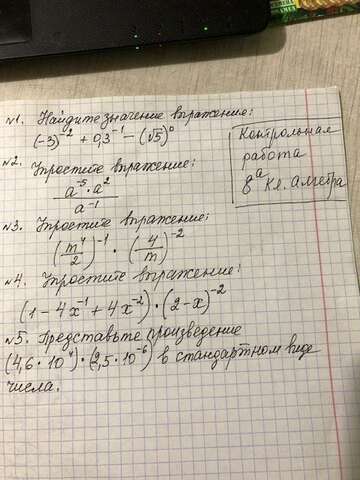 №1. Найдите значение выражение:
(-3)⁻² + 0,3⁻¹ - (√5)⁰
Контрольная
работа
8ᵃ Кл. алгебра
№2.
Упростите выражение:
a⁻³ · a²
a⁻¹
№3. Упростите выражение:
(m⁴/2)⁻¹ · (4/m)⁻²
№4. Упростите выражение:
(1 - 4x⁻¹ + 4x⁻²) · (2 - x)⁻²
№5. Представьте произведение
(4,6 · 10⁴) · (2,5 · 10⁻⁶) в стандартном виде
числа.